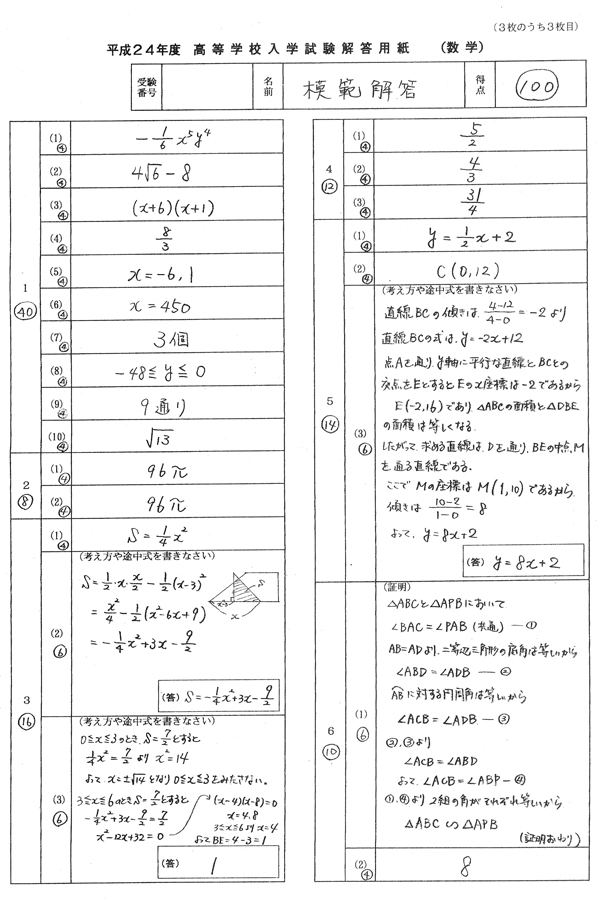 (3枚のうち3枚目)
平成24年度 高等学校入学試験解答用紙 (数学)
受験番号
名前
模範解答
得点
100
1
40
(1) ④
-1/6 x⁵y⁴
(2) ④
4√6 - 8
(3) ④
(x+6)(x+1)
(4) ④
8/3
(5) ④
x=-6, 1
(6) ④
x = 450
(7) ④
3個
(8) ④
-48≦y≦0
(9) ④
9通り
(10) ④
√13
2
⑧
(1) ④
96π
(2) ④
96π
3
⑯
(1) ④
S = 1/4 x²
(2) ⑥
(考え方や途中式を書きなさい)
S = 1/2・x・x/2 - 1/2(x-3)²
= x²/4 - 1/2(x²-6x+9)
= -1/4x²+3x-9/2
x-3
S
x
(答) S=-1/4x²+3x-9/2
(3) ⑥
(考え方や途中式を書きなさい)
0≦x≦3のとき, S=7/2とすると
1/4x²=7/2 より x²=14
よって x=±√14となり 0≦x≦3をみたさない。
3≦x≦6のとき S=7/2とすると
-1/4x²+3x-9/2=7/2
x²-12x+32=0
(x-4)(x-8)=0
x=4,8
3≦x≦6より x=4
よって BE=4-3=1
(答) 1
4
⑫
(1) ④
5/2
(2) ④
4/3
(3) ④
31/4
5
⑭
(1) ④
y = 1/2 x+2
(2) ④
C(0,12)
(3) ⑥
(考え方や途中式を書きなさい)
直線BCの傾きは, 4-12/4-0 = -2より
直線BCの式は, y=-2x+12
点Aを通り, y軸に平行な直線とBCとの
交点をEとするとEのx座標は-2であるから
E(-2,16)であり, △ABCの面積と△DBE
の面積は等しくなる.
したがって, 求める直線は, Dを通り, BEの中点M
を通る直線である.
ここで Mの座標は M(1,10)であるから,
傾きは 10-2/1-0 = 8
よって, y=8x+2
(答) y=8x+2
6
⑩
(1) ⑥
(証明)
△ABCと△APBにおいて
∠BAC=∠PAB (共通) — ①
AB=ADより, 二等辺三角形の底角は等しいから
∠ABD=∠ADB — ②
ABに対する円周角は等しいから
∠ACB=∠ADB — ③
②,③より
∠ACB=∠ABD
よって, ∠ACB=∠ABP — ④
①,④より 2組の角がそれぞれ等しいから
△ABC∽△APB
(証明おわり)
(2) ④
8